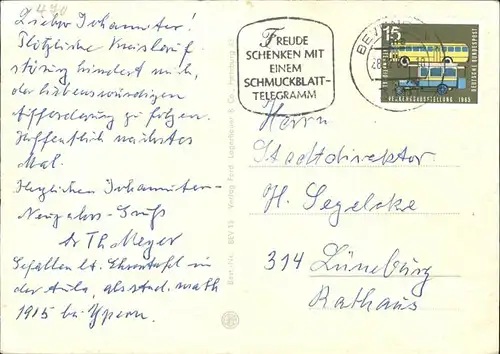 470
Lieber Johanniter!
Plötzliche Kreislauf
störung hindert mich,
der liebenswürdigen
Aufforderung zu folgen.
Hoffentlich nächstes
Mal.
Herzlichen Johanniter-
Neujahrs-Gruß
Dr Th Meyer
Gefallen lt. Ehrentafel in
der Aula, als stud. math
1915 bei Ypern.
FREUDE
SCHENKEN MIT
EINEM
SCHMUCKBLATT-
TELEGRAMM
BEV
15
DEUTSCHE BUNDESPOST
VERKEHRSAUSSTELLUNG 1965
Best.-Nr. BEV 13 Verlag Ferd. Lagerbauer & Co., Hamburg
Herrn
Stadtdirektor
H. Segelcke
314 Lüneburg
Rathaus